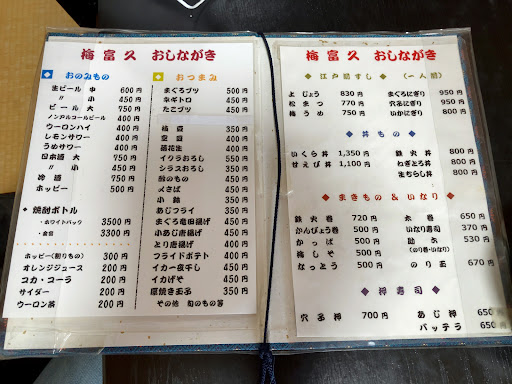 梅富久 おしながき
おのみもの
生ビール 中 600円
〃 小 450円
ビール 大 750円
ノンアルコールビール 400円
ウーロンハイ 400円
レモンサワー 400円
うめサワー 400円
日本酒 大 750円
〃 小 450円
冷酒 750円
ホッピー 500円
焼酎ボトル
・ホワイトパック 3500円
3300円
ホッピー(割りもの) 300円
オレンジジュース 200円
コカ・コーラ 200円
サイダー 200円
ウーロン茶 200円
おつまみ
まぐろブツ 500円
ネギトロ 450円
たこブツ 450円
板 350円
空豆 400円
落花生 400円
イクラおろし 550円
シラスおろし 350円
酢のもの 450円
〆さば 450円
小 350円
あじフライ 350円
まぐろ竜田揚げ 450円
小あじ唐揚げ 450円
とり唐揚げ 400円
フライドポテト 400円
イカ一夜干し 450円
イカげそ 450円
厚焼き玉子 350円
その他 旬のもの等
梅富久 おしながき
江戸前すし (一人前)
よじょう 830円
松まつ 770円
梅うめ 750円
まぐろにぎり 950円
穴子にぎり 950円
いかにぎり 850円
丼もの
いくら丼 1,350円
甘えび丼 1,100円
鉄火丼 800円
ねぎとろ丼 800円
まちらし丼 800円
まきもの & いなり
鉄火巻 720円
かんぴょう巻 500円
かっぱ 500円
梅しそ 500円
なっとう 500円
太巻 650円
いなり寿司 370円
助六 530円
(のり巻・いなり)
のり玉 670円
押寿司
穴子押 700円
あじ押 650円
バッテラ 650円